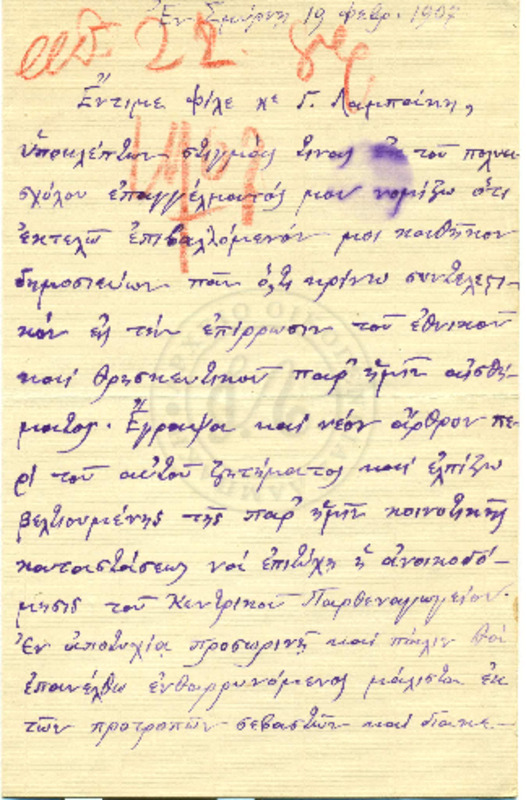 Ἐν Σμύρνῃ 19 Φεβρ. 1907
22.
Ἔντιμε φίλε κε Γ. Λαμπάκη,
Ὑποκλέπτων στιγμάς τινας ἐκ τοῦ πολυα-
σχόλου ἐπαγγέλματός μου νομίζω ὅτι
ἐκτελῶ ἐπιβαλλόμενόν μοι καθῆκον
δημοσιεύων πᾶν ὅ,τι κρίνω συντελεστι-
κὸν εἰς τὴν ἐπίρρωσιν τοῦ ἐθνικοῦ
καὶ θρησκευτικοῦ παρ' ἡμῖν αἰσθή-
ματος. Ἔγραψα καὶ νέον ἄρθρον πε-
ρὶ τοῦ αὐτοῦ ζητήματος καὶ ἐλπίζω
βελτιουμένης τῆς παρ' ἡμῖν κοινοτικῆς
καταστάσεως νὰ ἐπιτύχῃ ἡ ἀνοικοδό-
μησις τοῦ Κεντρικοῦ Παρθεναγωγείου.
Ἐν ἀποτυχίᾳ προσωρινῇ καὶ πάλιν θὰ
ἐπανέλθω ἐνθαρρυνόμενος μάλιστα ἐκ
τῶν προτροπῶν σεβαστῶν καὶ διακε-